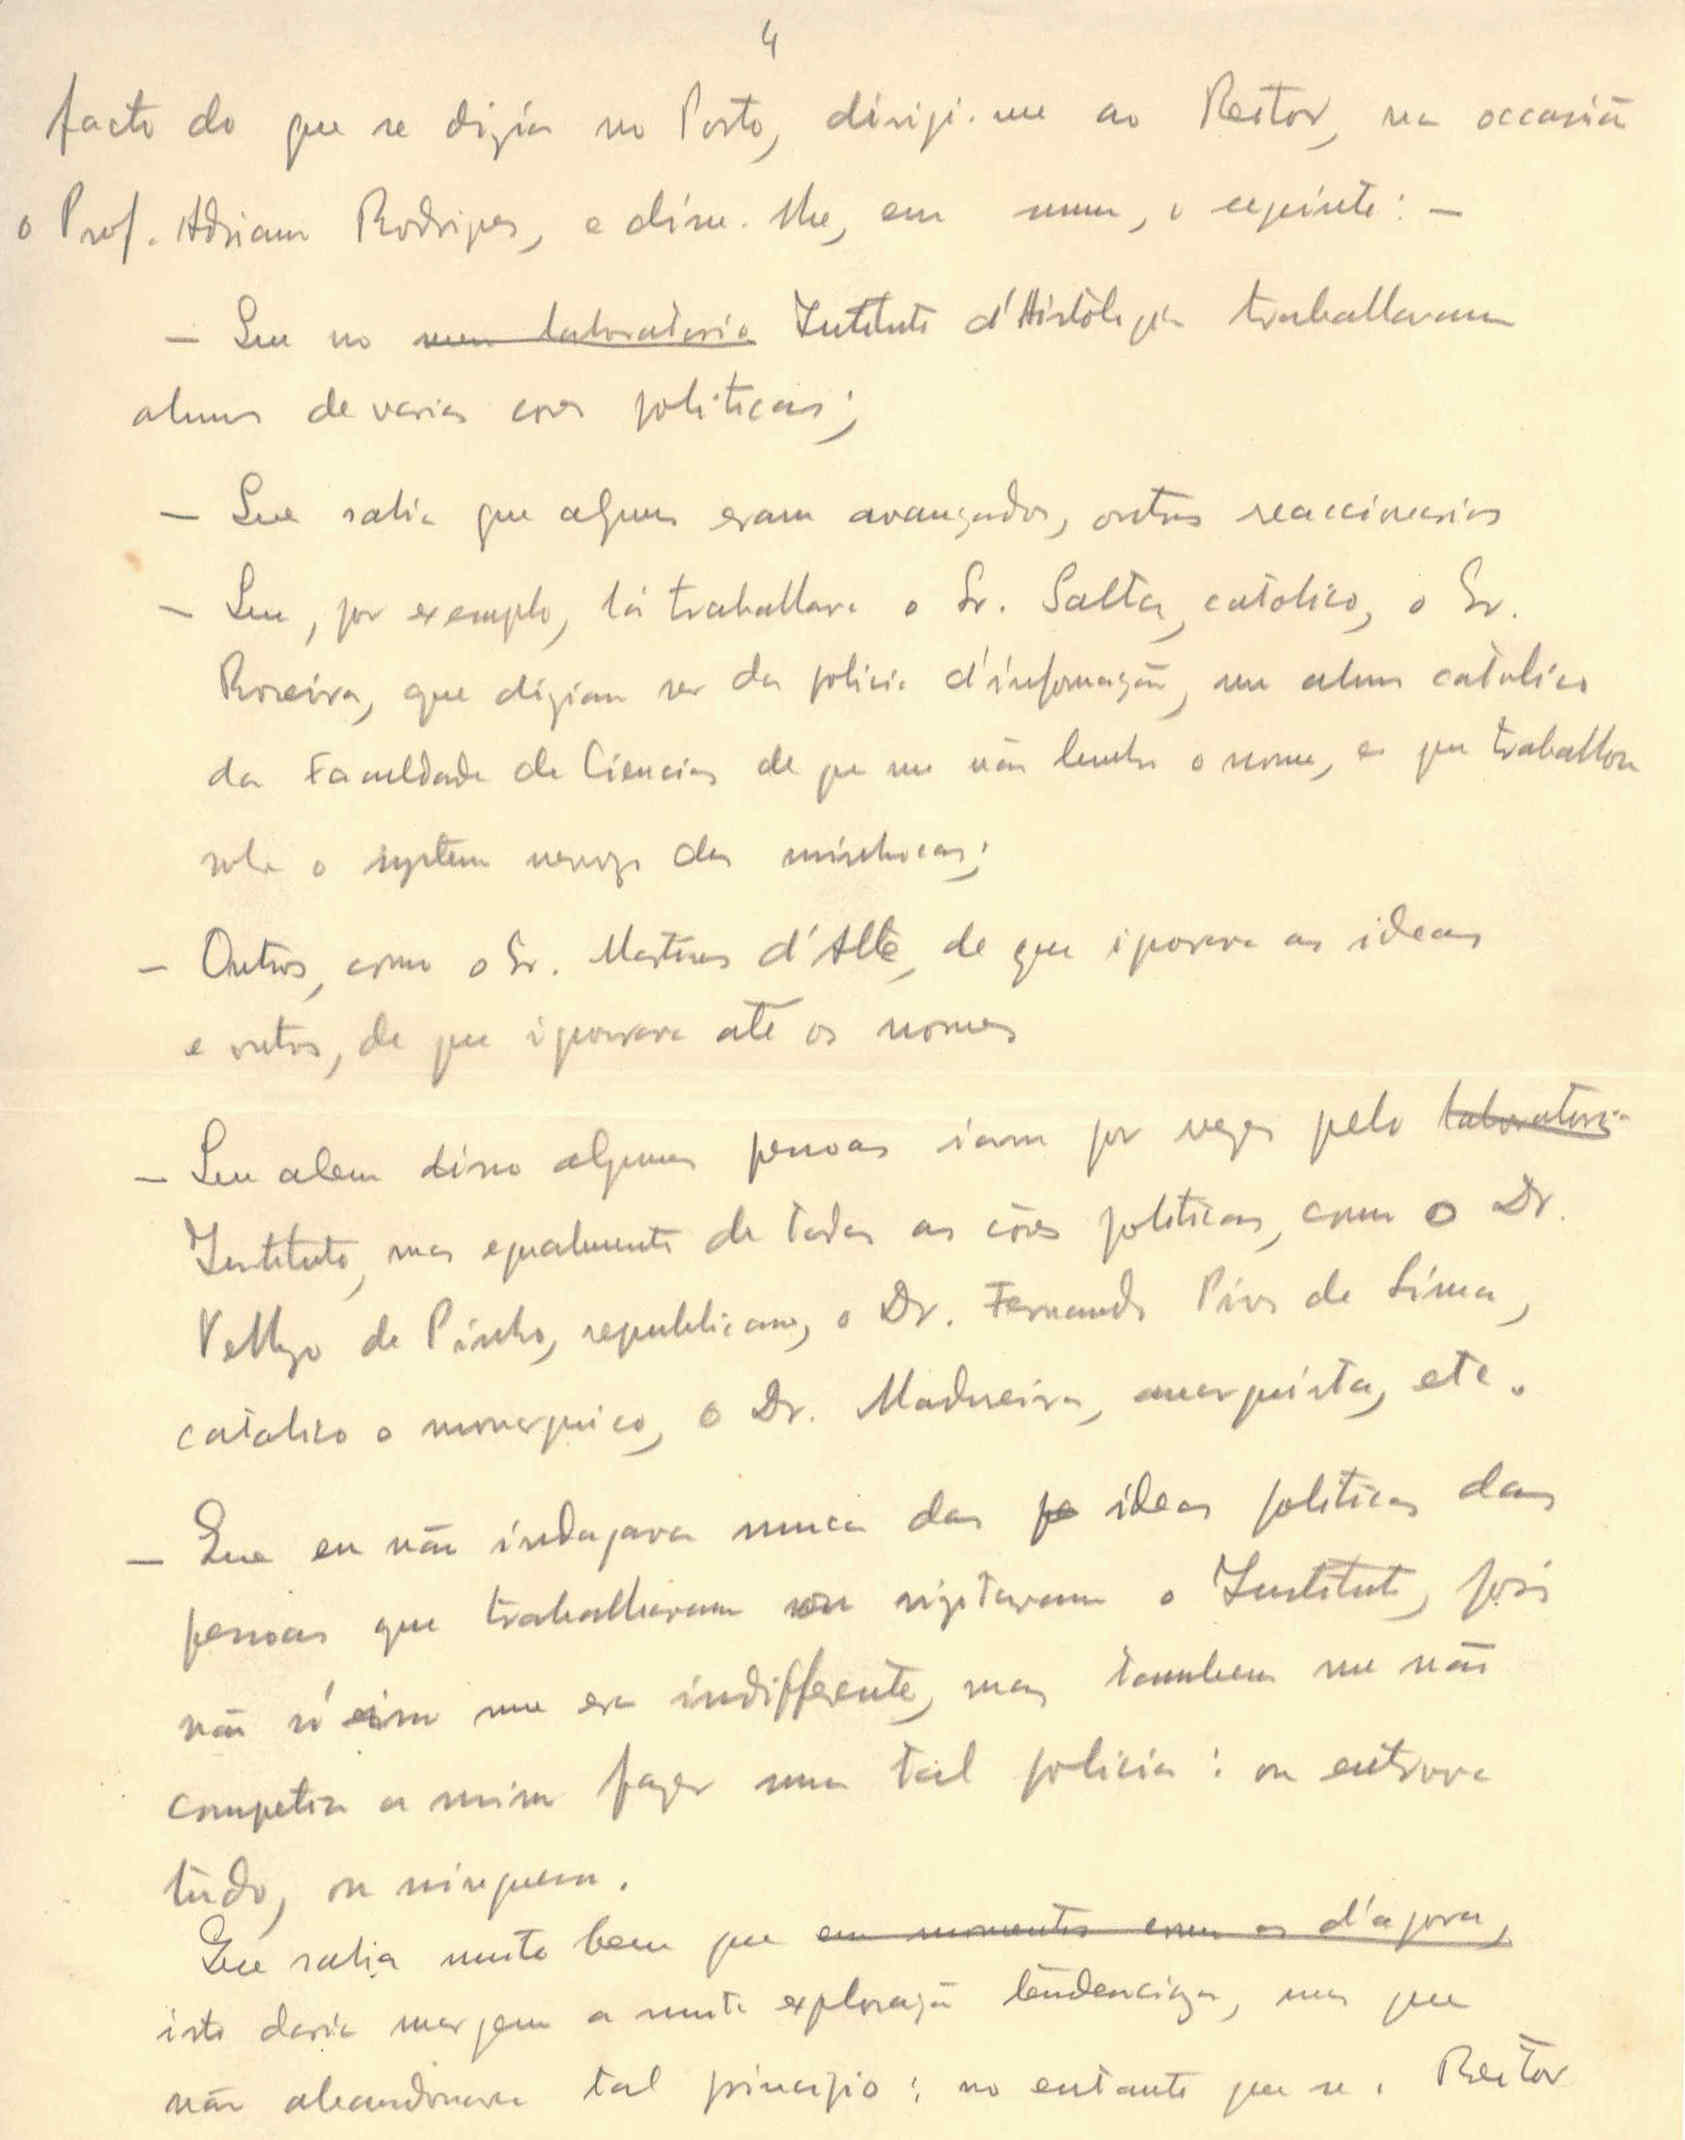 4
facto do que se dizia no Porto, dirigi-me ao Reitor, na occasião
o Prof. Adriano Rodrigues, e disse-lhe, em summa, o seguinte: —
— Que no meu laboratorio Instituto d'Histologia trabalhavam
alunos de varias cores politicas;
— Que sabia que alguns eram avançados, outros reaccionarios
— Que, por exemplo, lá trabalhava o Sr. Salta, catolico, o Sr.
Roseira, que diziam ser da policia d'informação, um aluno catolico
da Faculdade de Ciencias de que me não lembra o nome, e que trabalhou
sobre o systema nervoso das minhocas;
— Outros, como o Sr. Martins d'Alte, de que ignorava as ideas
e outros, de que ignorava até os nomes
— Que alem disso algumas pessoas iam por vezes pelo laboratorio
Instituto, mas egualmente de todas as côres politicas, como o Dr.
Vellozo de Pinho, republicano, o Dr. Fernando Pires de Lima,
catolico e monarquico, o Dr. Madureira, anarquista, etc.
— Que eu não indagava nunca das pe ideas politicas das
pessoas que trabalhavam ou visitavam o Instituto, pois
não só isso me era indifferente, mas tambem me não
competia a mim fazer uma tal policia: ou entrava
tudo, ou ninguem.
Que sabia muito bem que em momentos como os d'agora,
isto daria margem a muita exploração tendenciosa, mas que
não abandonava tal principio: no entanto que se o Reitor